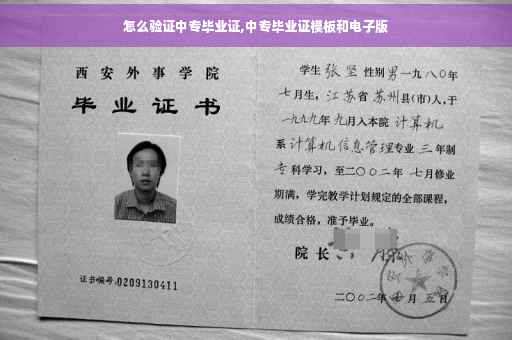 怎么验证中专毕业证,中专毕业证模板和电子版
西安外事学院
毕业证书
证书编号:0209130411
学生 张坚 性别男 一九八〇年
七月生，江苏省苏州县(市)人，于
一九九九年九月入本院 计算机
系 计算机信息管理专业 三 年制
专科学习，至二〇〇二年 七月修业
期满，学完教学计划规定的全部课程，
成绩合格，准予毕业。
院长
二〇〇二年 月五日